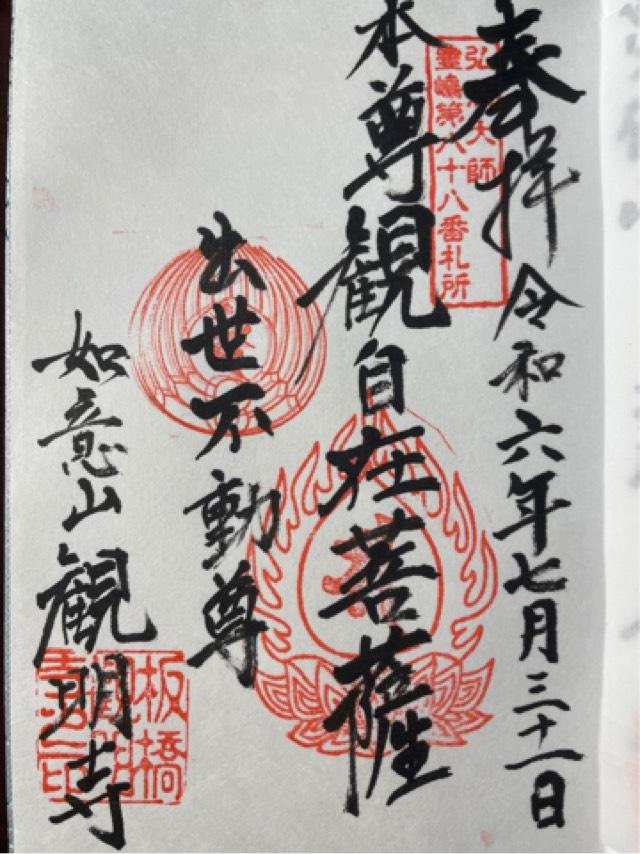 奉拝 令和六年七月三十一日
弘法大師
霊場第八十八番札所
本尊観自在菩薩
出世不動尊
如意山観明寺
板橋